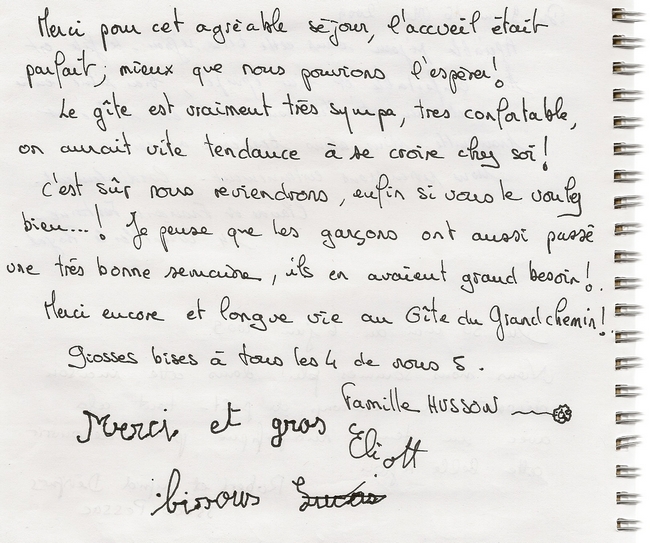 Merci pour cet agréable séjour, l'accueil était
parfait, mieux que nous pouvions l'espérer!
Le gîte est vraiment très sympa, tres confortable,
on aurait vite tendance à se croire chez soi!
c'est sûr nous reviendrons, enfin si vous le voulez
bien...! Je pense que les garçons ont aussi passé
une très bonne semaine, ils en avaient grand besoin!.
Merci encore et longue vie au Gîte du Grand chemin!.
Grosses bises à tous les 4 de nous 5.
Famille HUSSON
Merci et gros
Eliott
bissous Lucas